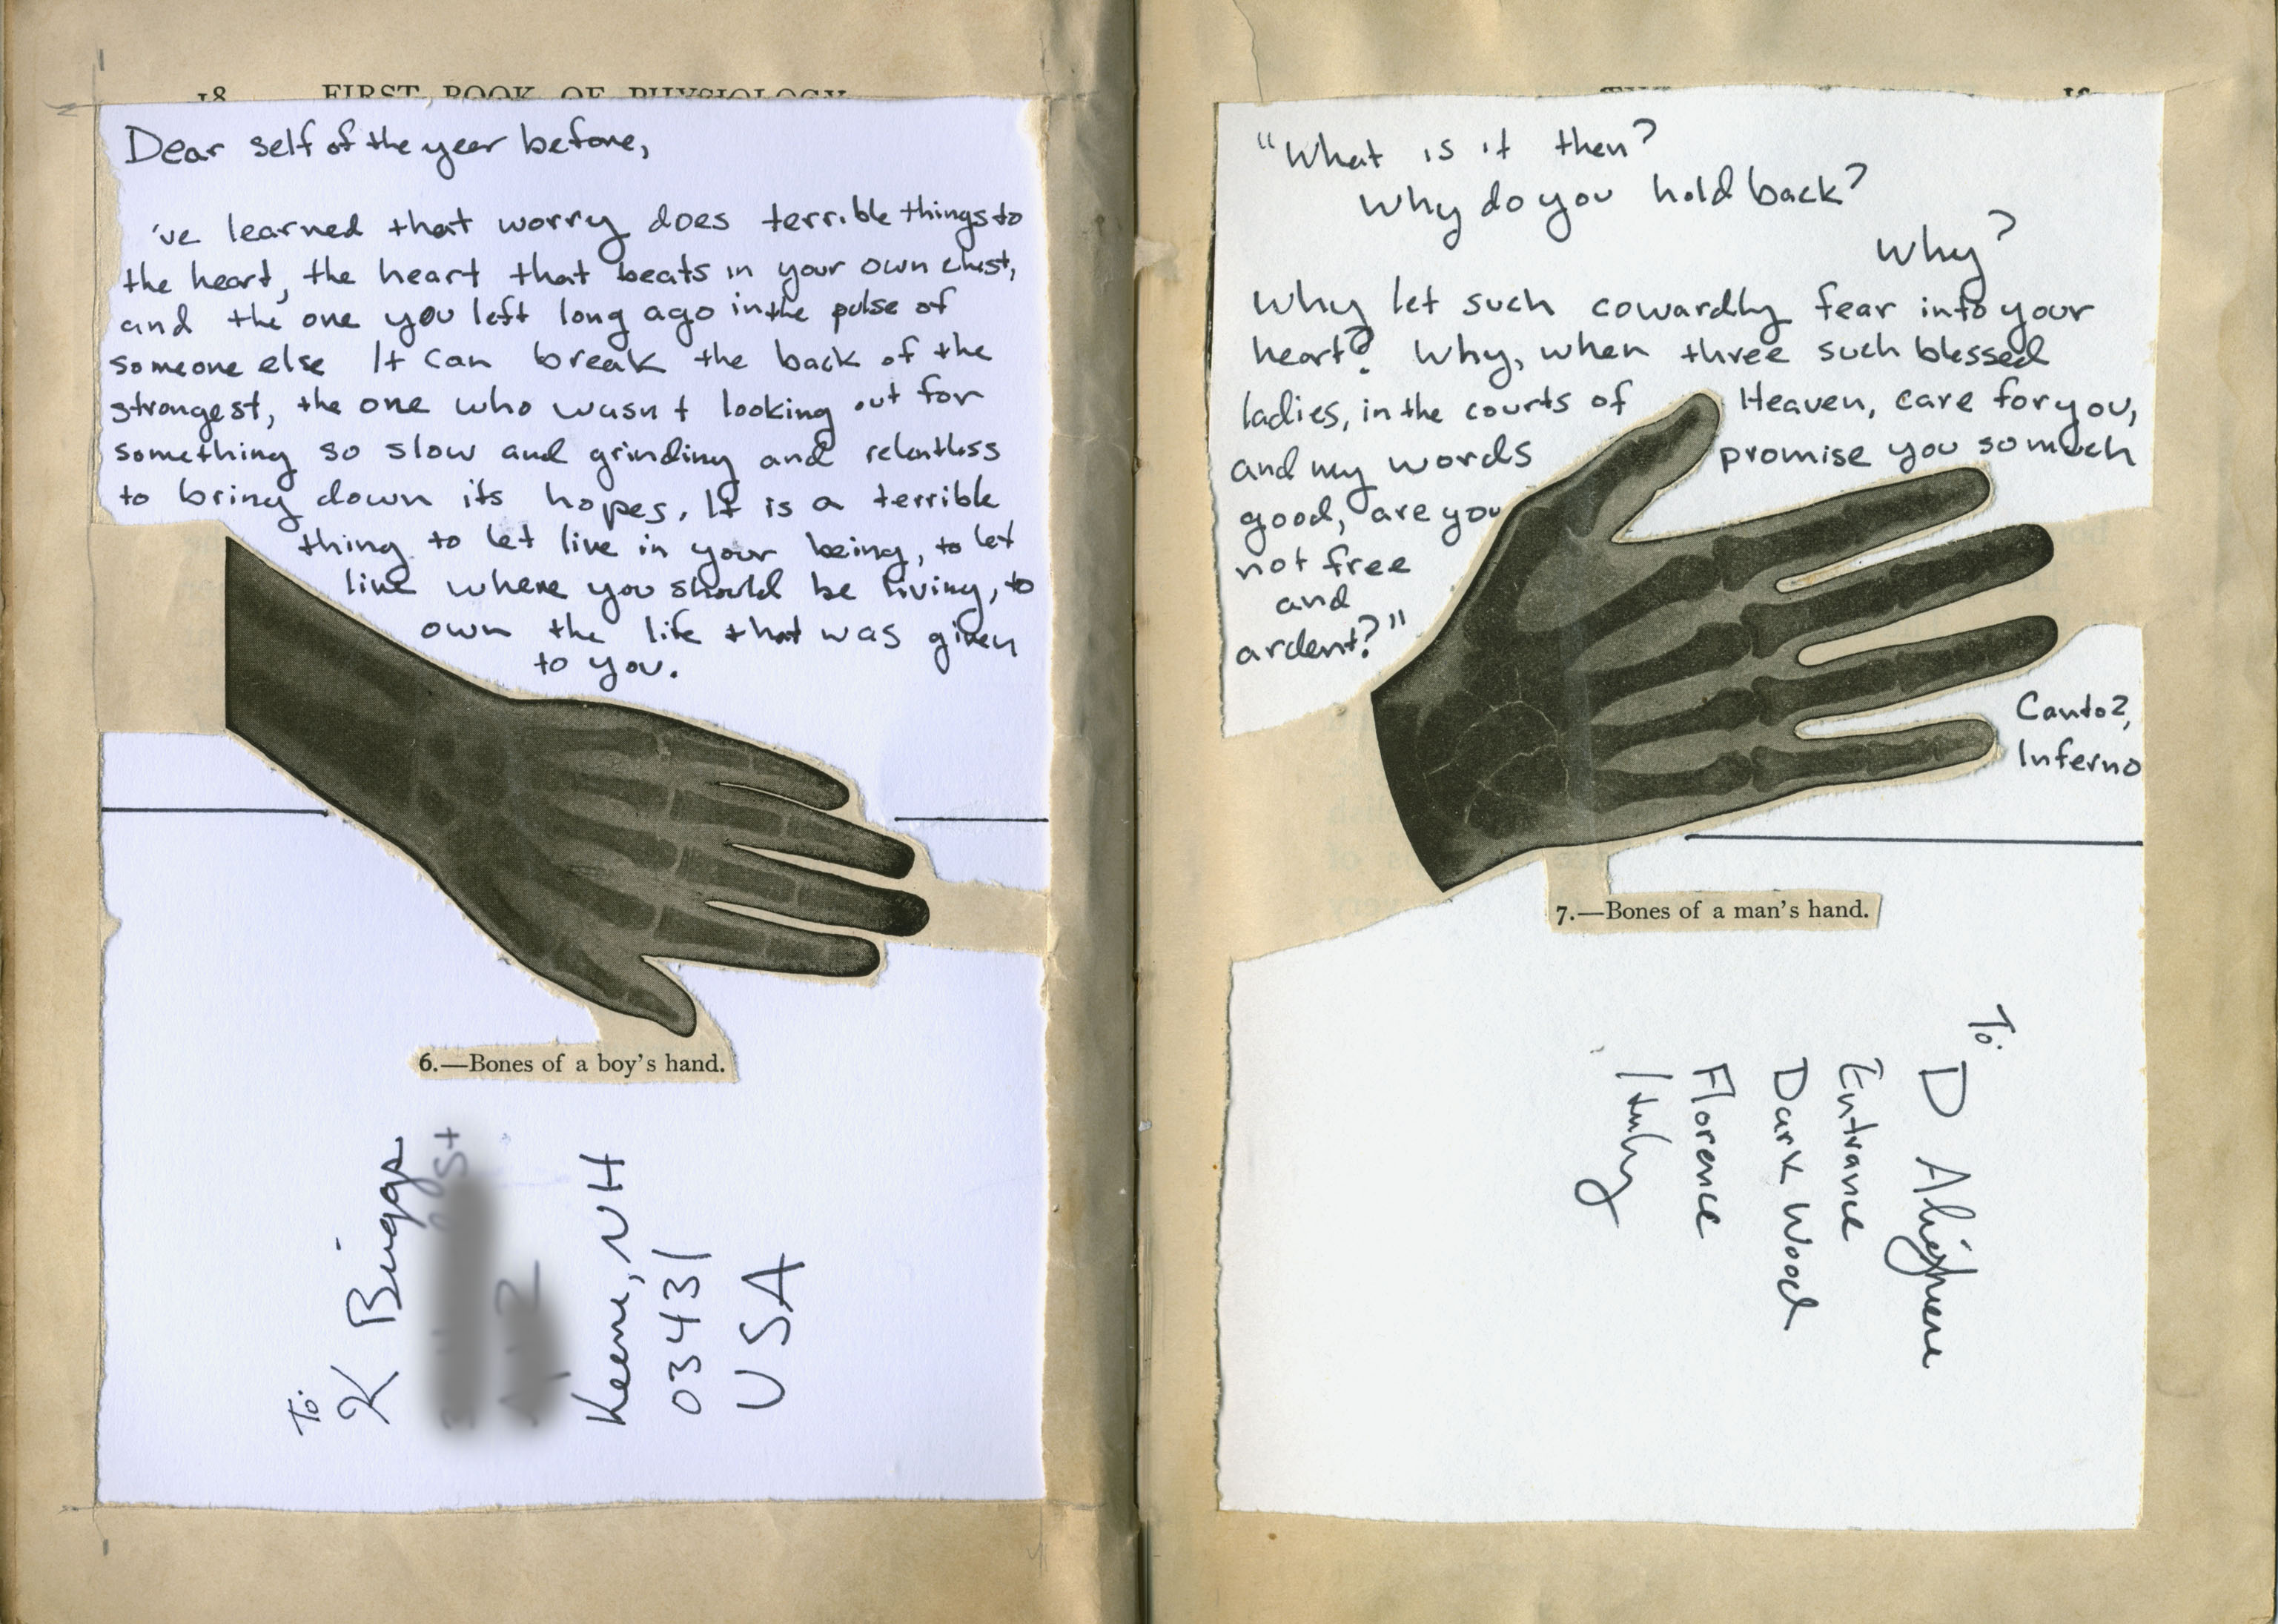 18 FIRST BOOK OF PHYSIOLOGY
Dear self of the year before,
've learned that worry does terrible things to
the heart, the heart that beats in your own chest,
and the one you left long ago in the pulse of
someone else It can break the back of the
strongest, the one who wasn't looking out for
something so slow and grinding and relentless
to bring down its hopes. It is a terrible
thing to let live in your being, to let
live where you should be living, to
own the life that was given
to you.
6.—Bones of a boy's hand.
To:
K Biggs
St
Keene, NH
03431
USA
"What is it then?
Why do you hold back?
Why?
Why let such cowardly fear into your
heart? Why, when three such blessed
ladies, in the courts of Heaven, care for you,
and my words promise you so much
good, are you
not free
and
ardent?"
Canto 2,
Inferno
7.—Bones of a man's hand.
To:
D Alighieri
Entrance
Dark Wood
Florence
Italy